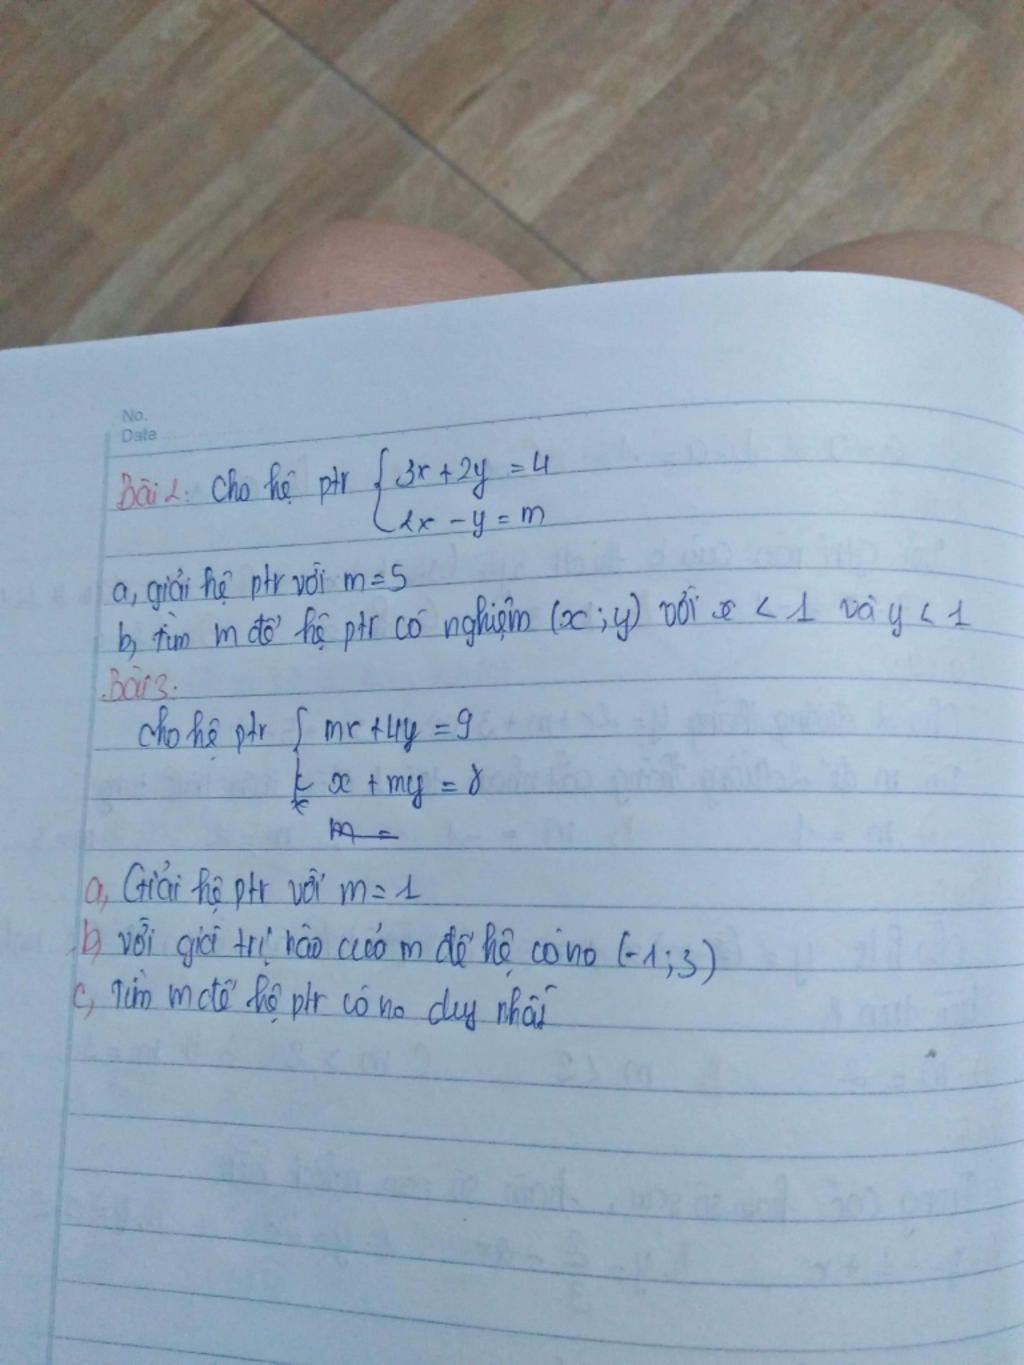 No.
Date
Bài 2: Cho hệ ptr { 3x + 2y = 4
2x - y = m
a, giải hệ ptr với m = 5
b, tìm m để hệ ptr có nghiệm (x ; y) với x < 1 và y < 1
Bài 3.
Cho hệ ptr { mx + 4y = 9
x + my = 8
m =
a, Giải hệ ptr với m = 1
b, với giá trị nào cuả m để hệ có no (-1 ; 3)
c, Tìm m để hệ ptr có no duy nhất